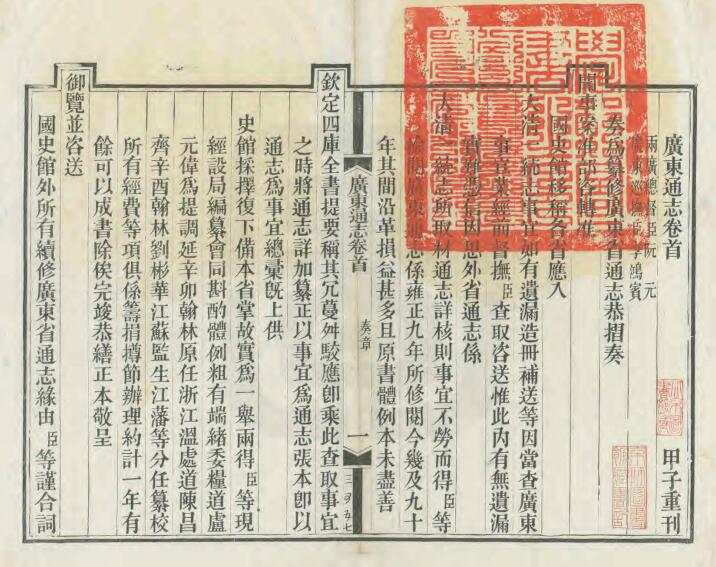 廣東通志卷首
甲子重刊
兩廣總督臣阮元
廣東巡撫臣李鴻賓
奏爲纂修廣東省通志恭摺奏
聞事案准部咨轉准
國史館移稱各省應入
大清一統志事宜如有遺漏造冊補送等因當查廣東
事宜業經前督撫臣查取咨送惟此內有無遺漏
實難憑信因思外省通志係
大清一統志所取材通志詳核則事宜不勞而得臣等
檢閱廣東通志係雍正九年所修閱今幾及九十
年其間沿革損益甚多且原書體例本未盡善
廣東通志卷首
奏章
一
三ヲ五七
欽定四庫全書提要稱其冗蔓舛駮應卽乘此查取事宜
之時將通志詳加纂正以事宜爲通志張本卽以
通志爲事宜總彙旣上供
史館採擇復下備本省掌故實爲一舉兩得臣等現
經設局編纂會同斟酌體例粗有端緒委糧道盧
元偉爲提調延辛卯翰林原任浙江溫處道陳昌
齊辛酉翰林劉彬華江蘇監生江藩等分任纂校
所有經費等項俱係籌捐撙節辦理約計一年有
餘可以成書除俟完竣恭繕正本敬呈
御覽並咨送
國史館外所有續修廣東省通志緣由臣等謹合詞